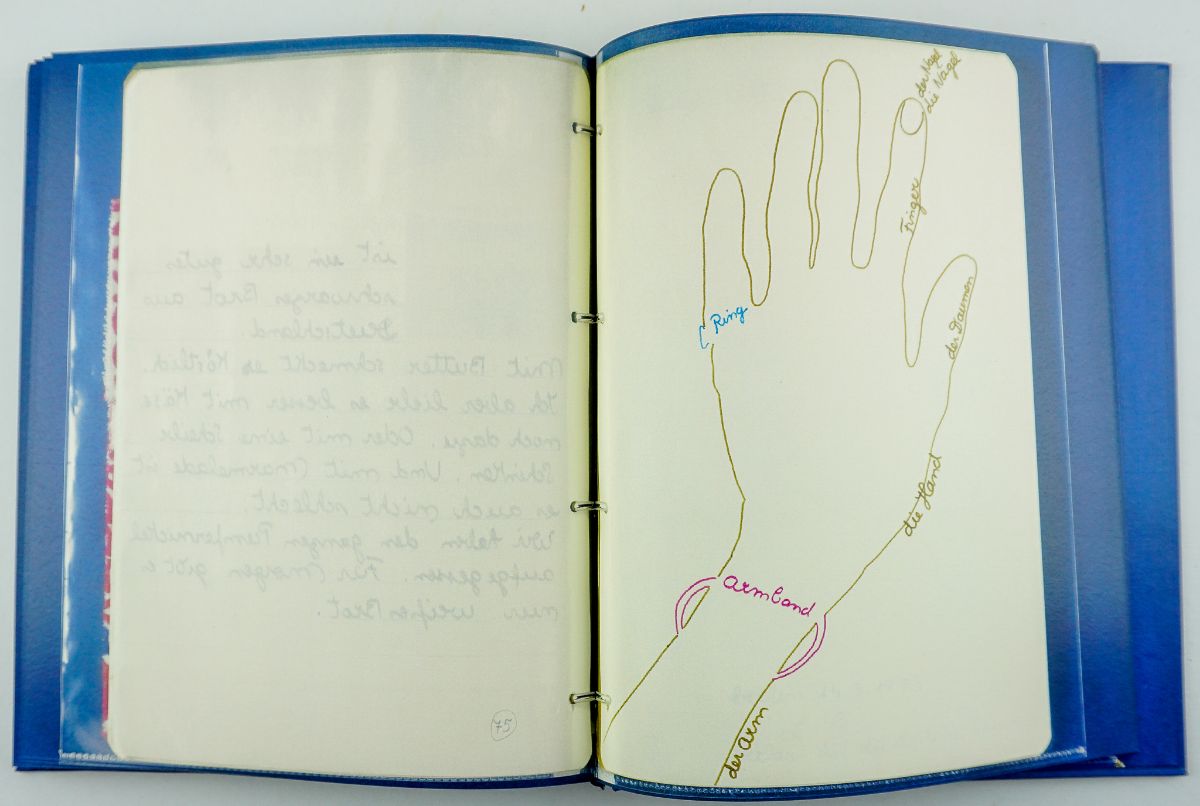 ist ein sehr gutes
schwarzes Brot aus
Deutschland.
Mit Butter schmeckt es Köstlich.
Ich aber liebe es besser mit Käse
noch dazu. Oder mit eine
Schinken. Und mit Marmelade ist
es auch nicht schlecht.
Wir den ganzen Pumpernickel
aufgegessen. Für morgen gibt es
nur weißes Brot.
75
der Nagel
die Nägel
Finger
der Daumen
Ring
die Hand
armband
der arm